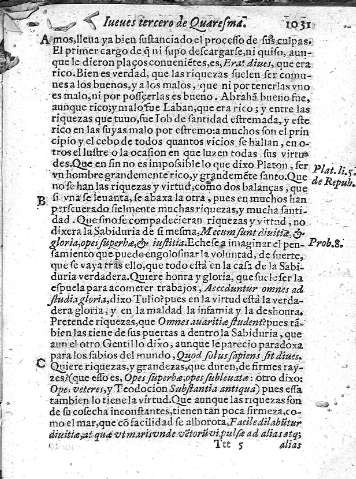 Iueues tercero de Quaresma. 1031
Amos, lleua ya bien sustanciado el processo de sus culpas.
El primer cargo de q̃ ni supo descargarse, ni quiso, aun-
que le dieron plaços conueniẽtes, es, Erat diues, que era
rico. Bien es verdad, que las riquezas suelen ser comu-
nes a los buenos, y a los malos, que ni por tenerlas vno
es malo, ni por posseerlas es bueno. Abrahã bueno fue,
aunque rico y malo fue Laban, que era rico; y entre las
riquezas que tuuo, fue Iob de santidad estremada, y este
rico en las suyas malo por estremo: a muchos son el prin
cipio y el cebo de todos quantos vicios se hallan, en o-
tros el lustre o la ocasion en que luzen todas sus virtu
des. Que en fin no es impossible lo que dixo Platon, ser
vn hombre grandemente rico, y grandemẽte santo. Que
no se han las riquezas y virtud, como dos balanças, que
si vna se leuanta, se abaxa la otra, pues en muchos han
perseuerado fielmente muchas riquezas, y mucha santi-
dad. Que si no se compadecieran riquezas y virtud, no
dixera la Sabiduria de si mesma, Mecum sunt diuitiæ &
gloria, opes superbæ, & iustitia. Echese a imaginar el pen-
samiento que puede engolosinar la voluntad, de suerte,
que se vaya tras ello, que todo està en la casa de la Sabi-
duria verdadera. Quiere honra y gloria, que suele ser la
espuela para acometer trabajos, Accenduntur omnes ad
studia gloria, dixo Tulio: pues en la virtud està la verda-
dera gloria, y en la maldad la infamia y la deshonra.
Pretende riquezas, que Omnes auaritiæ student: pues tã-
bien las tiene de sus puertas a dentro la Sabiduria, que
aun el otro Gentil lo dixo, aunque le parecio paradoxa
para los sabios del mundo, Quod solus sapiens sit diues.
Quiere riquezas, y grandezas, que duren, de firmes ray-
zes, (que esso es, Opes superbæ, opes subleuatæ: otro dixo:
Opes veteres, y Teodocion Substantia antiqua) pues essa
tambien lo tiene la virtud. Que aunque las riquezas son
de su cosecha inconstantes, tienen tan poca firmeza, co-
mo el mar, que cõ facilidad se alborota, Facile dilabũtur
diuitiæ, at quæ vt maris vndæ vẽtorũ vi pulsæ ad alias atq;
Ttt 5 alias
Plat. li. 5.
de Repub.
B
Prob. 8.
C